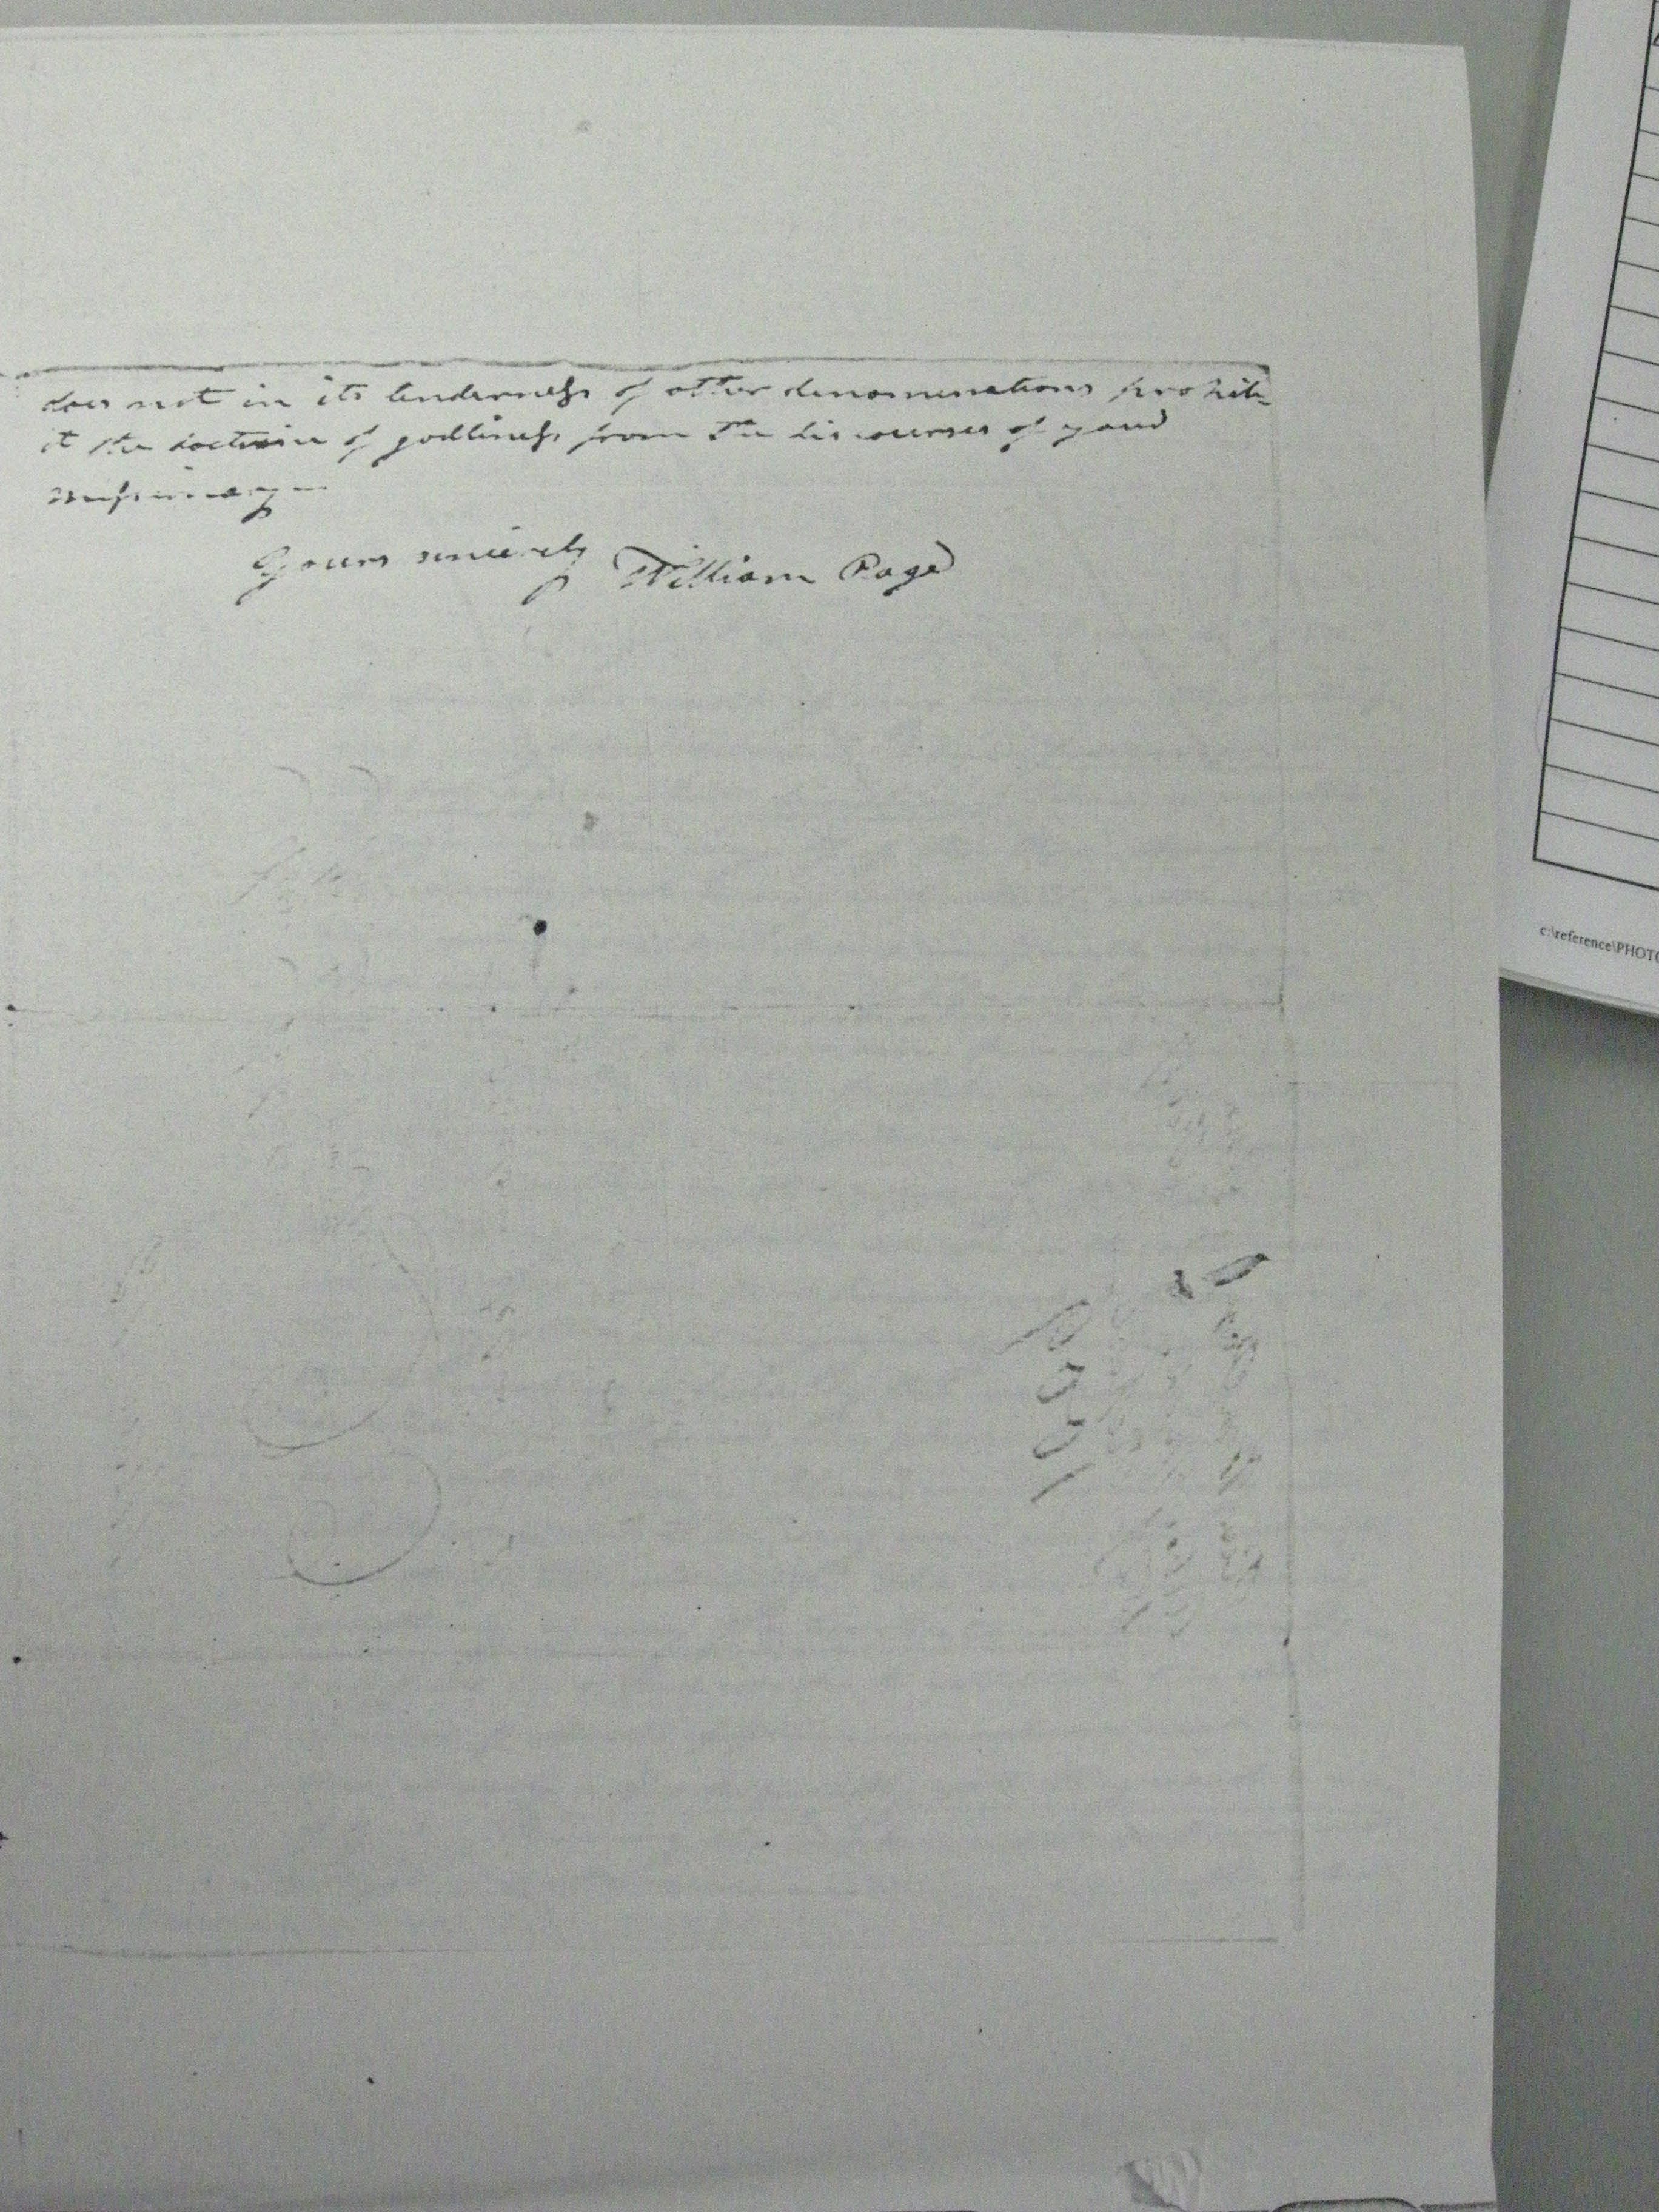 does not in its tenderness of other denominations prohib-
it the doctrine of godliness from the discourses of y
Yours sincerely William Page
c:\reference\PHOTO